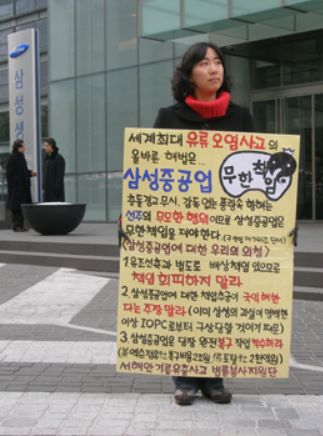 삼성생
세계최대 유류 오염사고의
올바른 해법은...
삼성중공업 무한책임
충돌경고 무시, 강풍에도 항해하는
선주의 무모한 행위이므로 삼성중공업은
무한책임을 져야한다.
<삼성중공업에 대한 우리의 외침>
1. 유조선측과 별도로 배상책임 있으므로
책임 회피하지 말라
2. 삼성중공업에 대한 책임추궁이 국익에 반한
다는 주장 말라 (이미 삼성의 과실이 명백한
이상 IOPC로부터 구상당할 것이기 때문)
3. 삼성중공업은 당장 완전복구 작업 착수하라
서해안 기름유출사고 법률봉사지원단